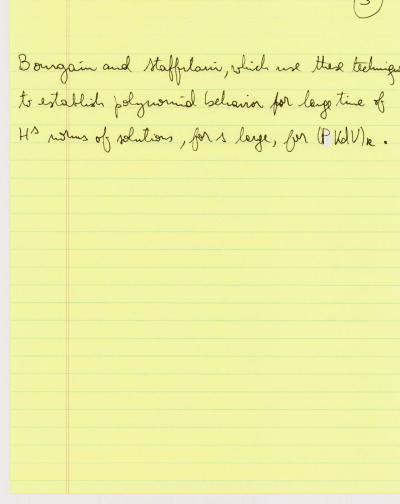 Bourgain and Staffilani, which use these technique
to establish polynomial behavior for large time of
H^s norms of solutions, for s large, for (PKdV)_k.